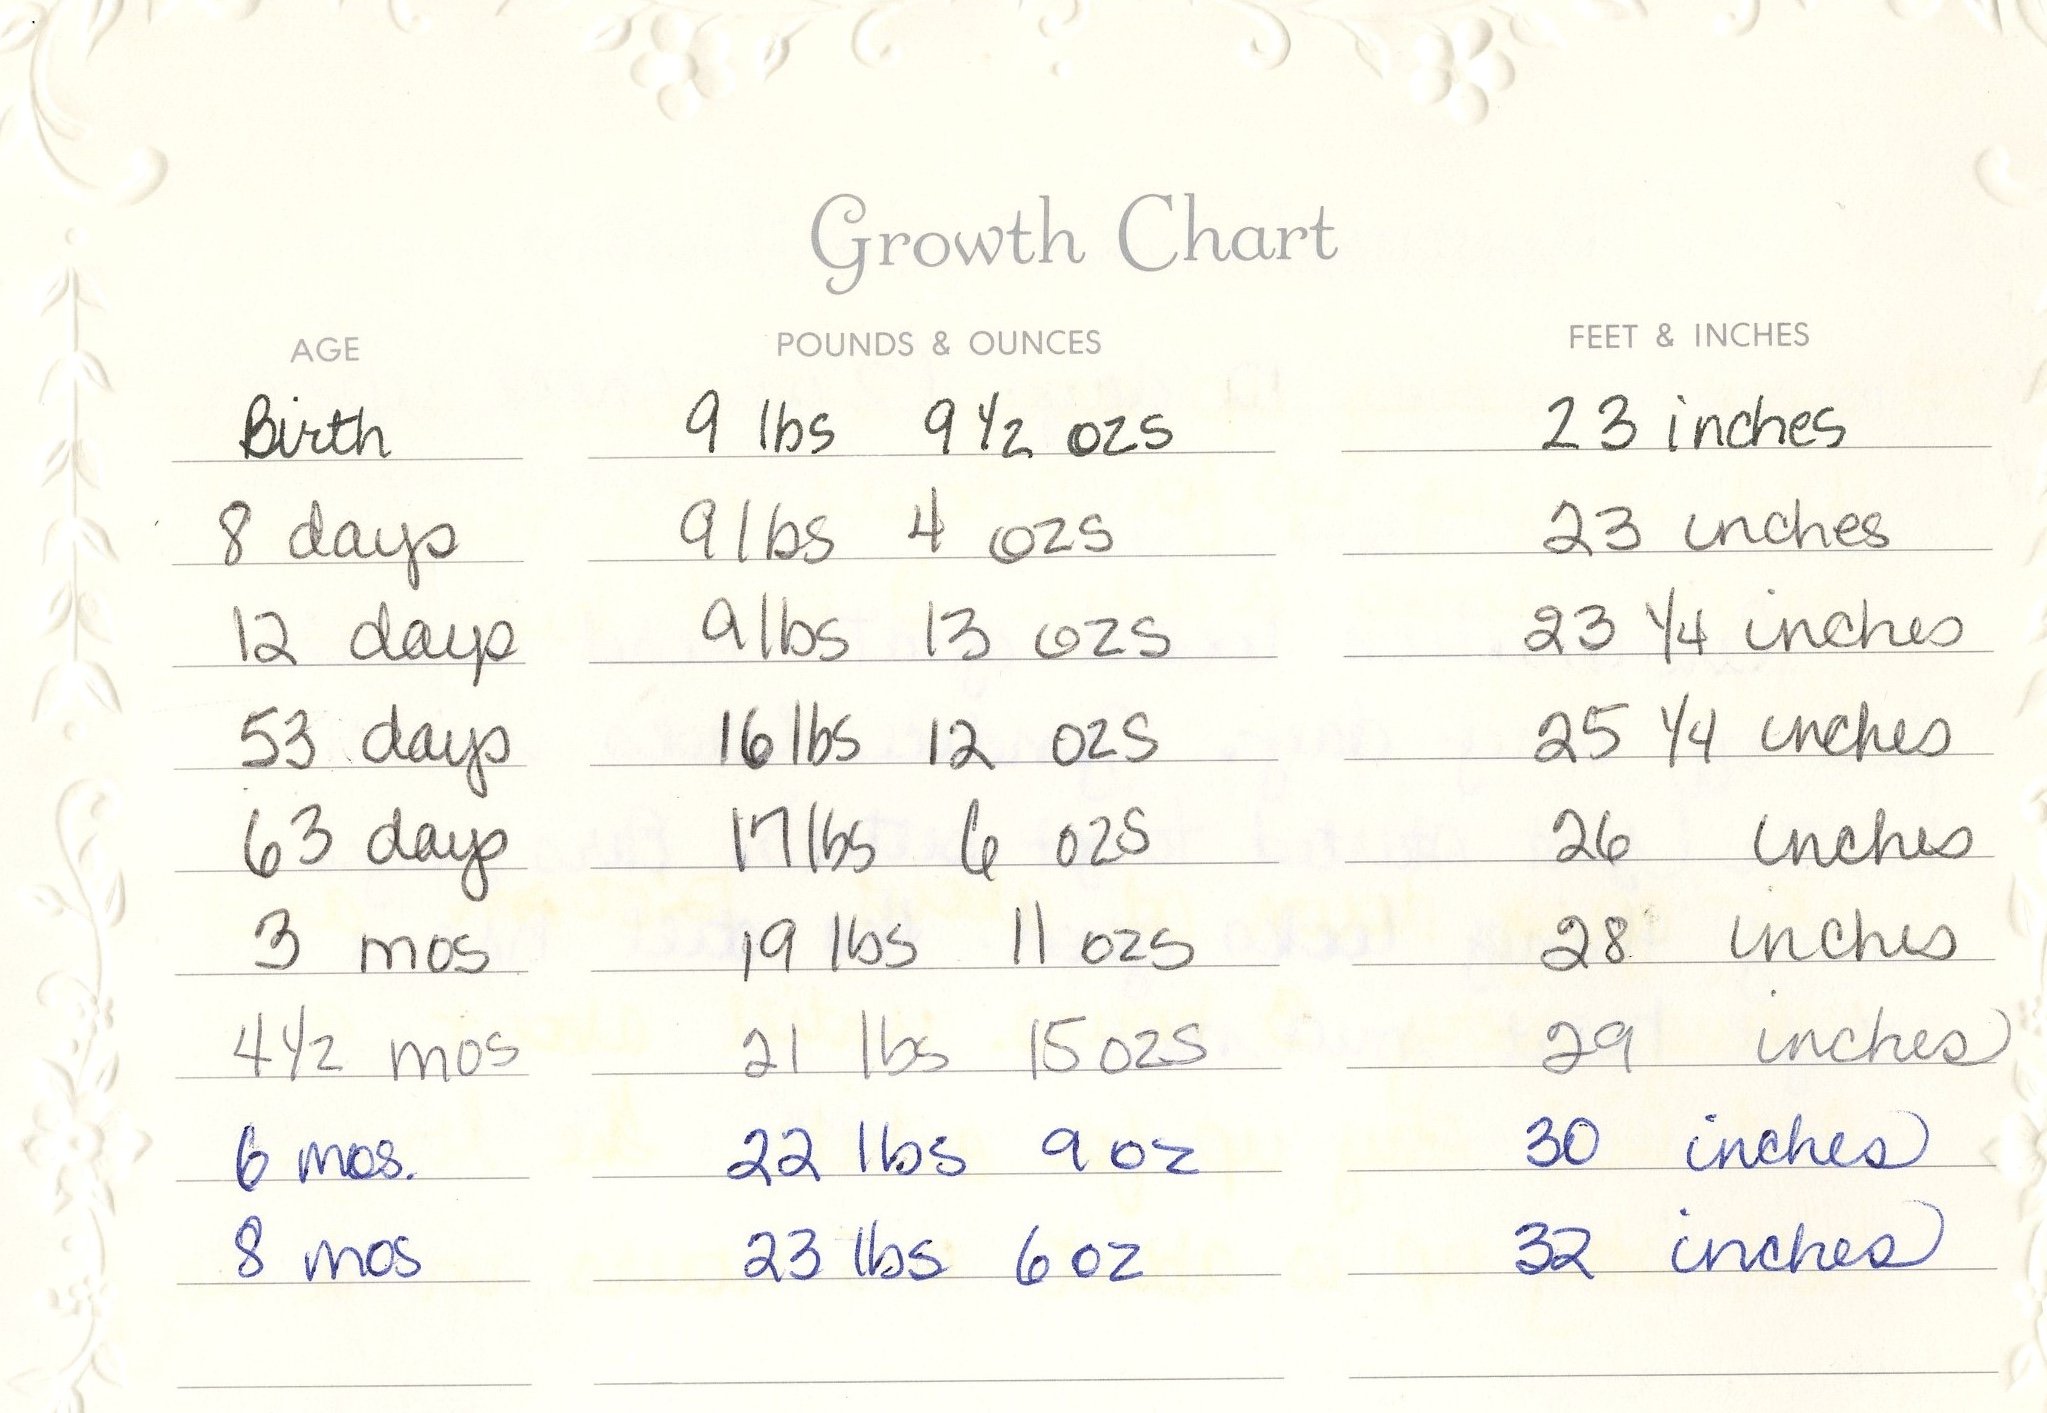 Growth Chart
AGE POUNDS & OUNCES FEET & INCHES
Birth 9 lbs 9 1/2 ozs 23 inches
8 days 9 lbs 4 ozs 23 inches
12 days 9 lbs 13 ozs 23 1/4 inches
53 days 16 lbs 12 ozs 25 1/4 inches
63 days 17 lbs 6 ozs 26 inches
3 mos 19 lbs 11 ozs 28 inches
4 1/2 mos 21 lbs 15 ozs 29 inches
6 mos. 22 lbs 9 oz 30 inches
8 mos 23 lbs 6 oz 32 inches